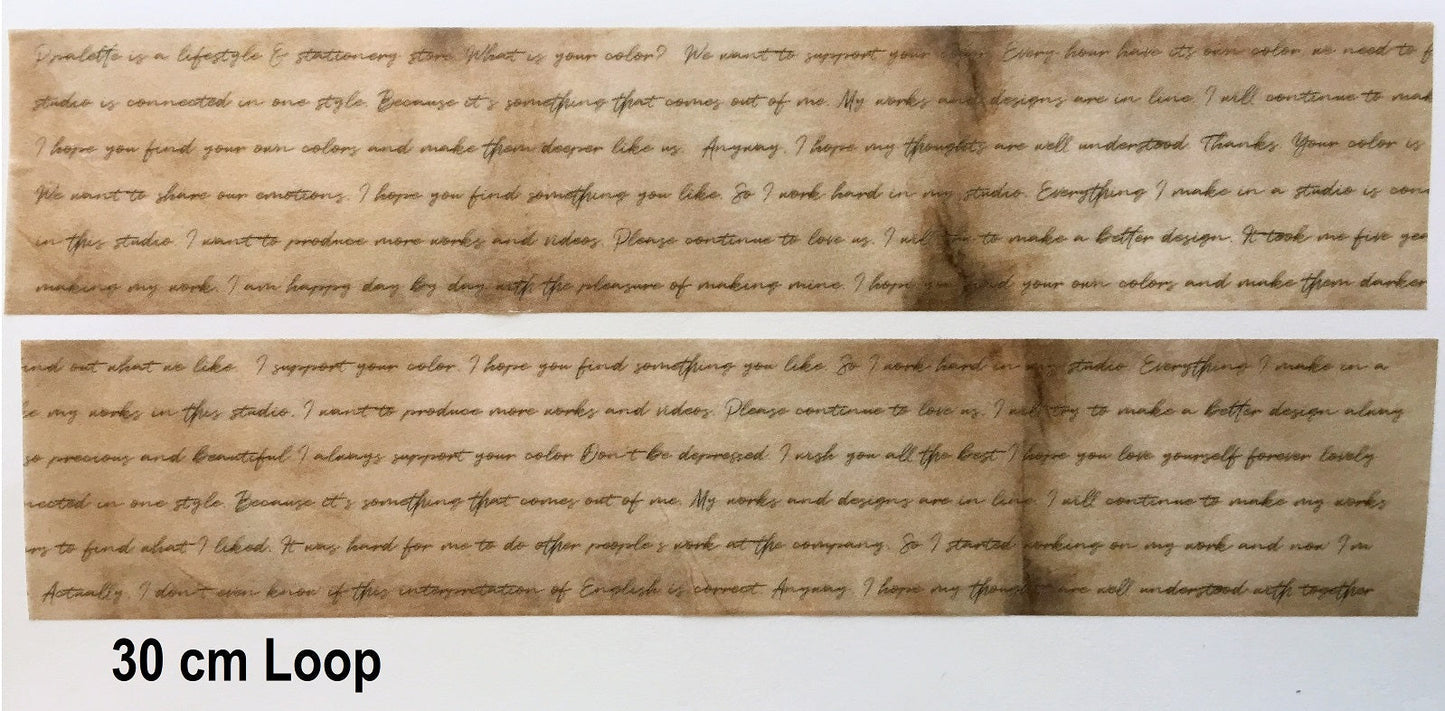 is a lifestyle & stationery store. What is your color? We want to support your color. Every hour have it's own color we need to f
studio is connected in one style. Because it's something that comes out of me. My works and designs are in line. I will continue to mak
I hope you find your own colors and make them deeper like us. Anyway, I hope my thoughts are well understood. Thanks. Your color is
We want to share our emotions. I hope you find something you like. So I work hard in my studio. Everything I make in a studio is con
in this studio. I want to produce more works and videos. Please continue to love us. I will try to make a better design. It took me five yea
making my work. I am happy day by day with the pleasure of making mine. I hope you find your own colors and make them darker
ind out what we like. I support your color. I hope you find something you like. So I work hard in my studio. Everything I make in a
e my works in this studio. I want to produce more works and videos. Please continue to love us. I will try to make a better design alway
so precious and beautiful I always support your color Don't be depressed. I wish you all the best I hope you love yourself forever lovely
nected in one style. Because it's something that comes out of me. My works and designs are in line. I will continue to make my works
ars to find what I liked. It was hard for me to do other people's work at the company. So I started working on my work and now I'm
Actually, I don't even know if this interpretation of English is correct Anyway, I hope my thoughts are well understood with together
30 cm Loop